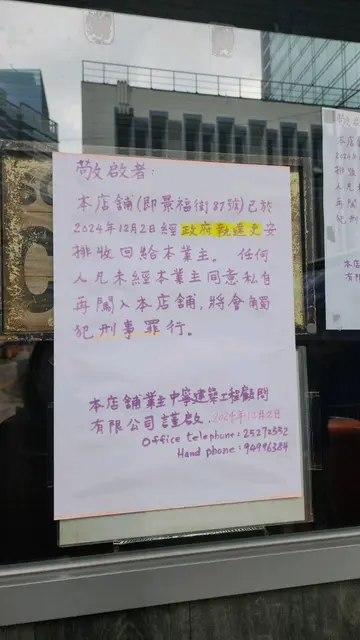 敬啟者:
本店舖(即景福街87號)已於
2024年12月2日經政府執達吏安
排收回給本業主。 任何
人凡未經本業主同意私自
再闖入本店舖,將會觸
犯刑事罪行。
本店舖業主中寧建築工程顧問
有限公司謹啟. 2024年12月2日
Office telephone: 25272352
Hand phone: 94996384